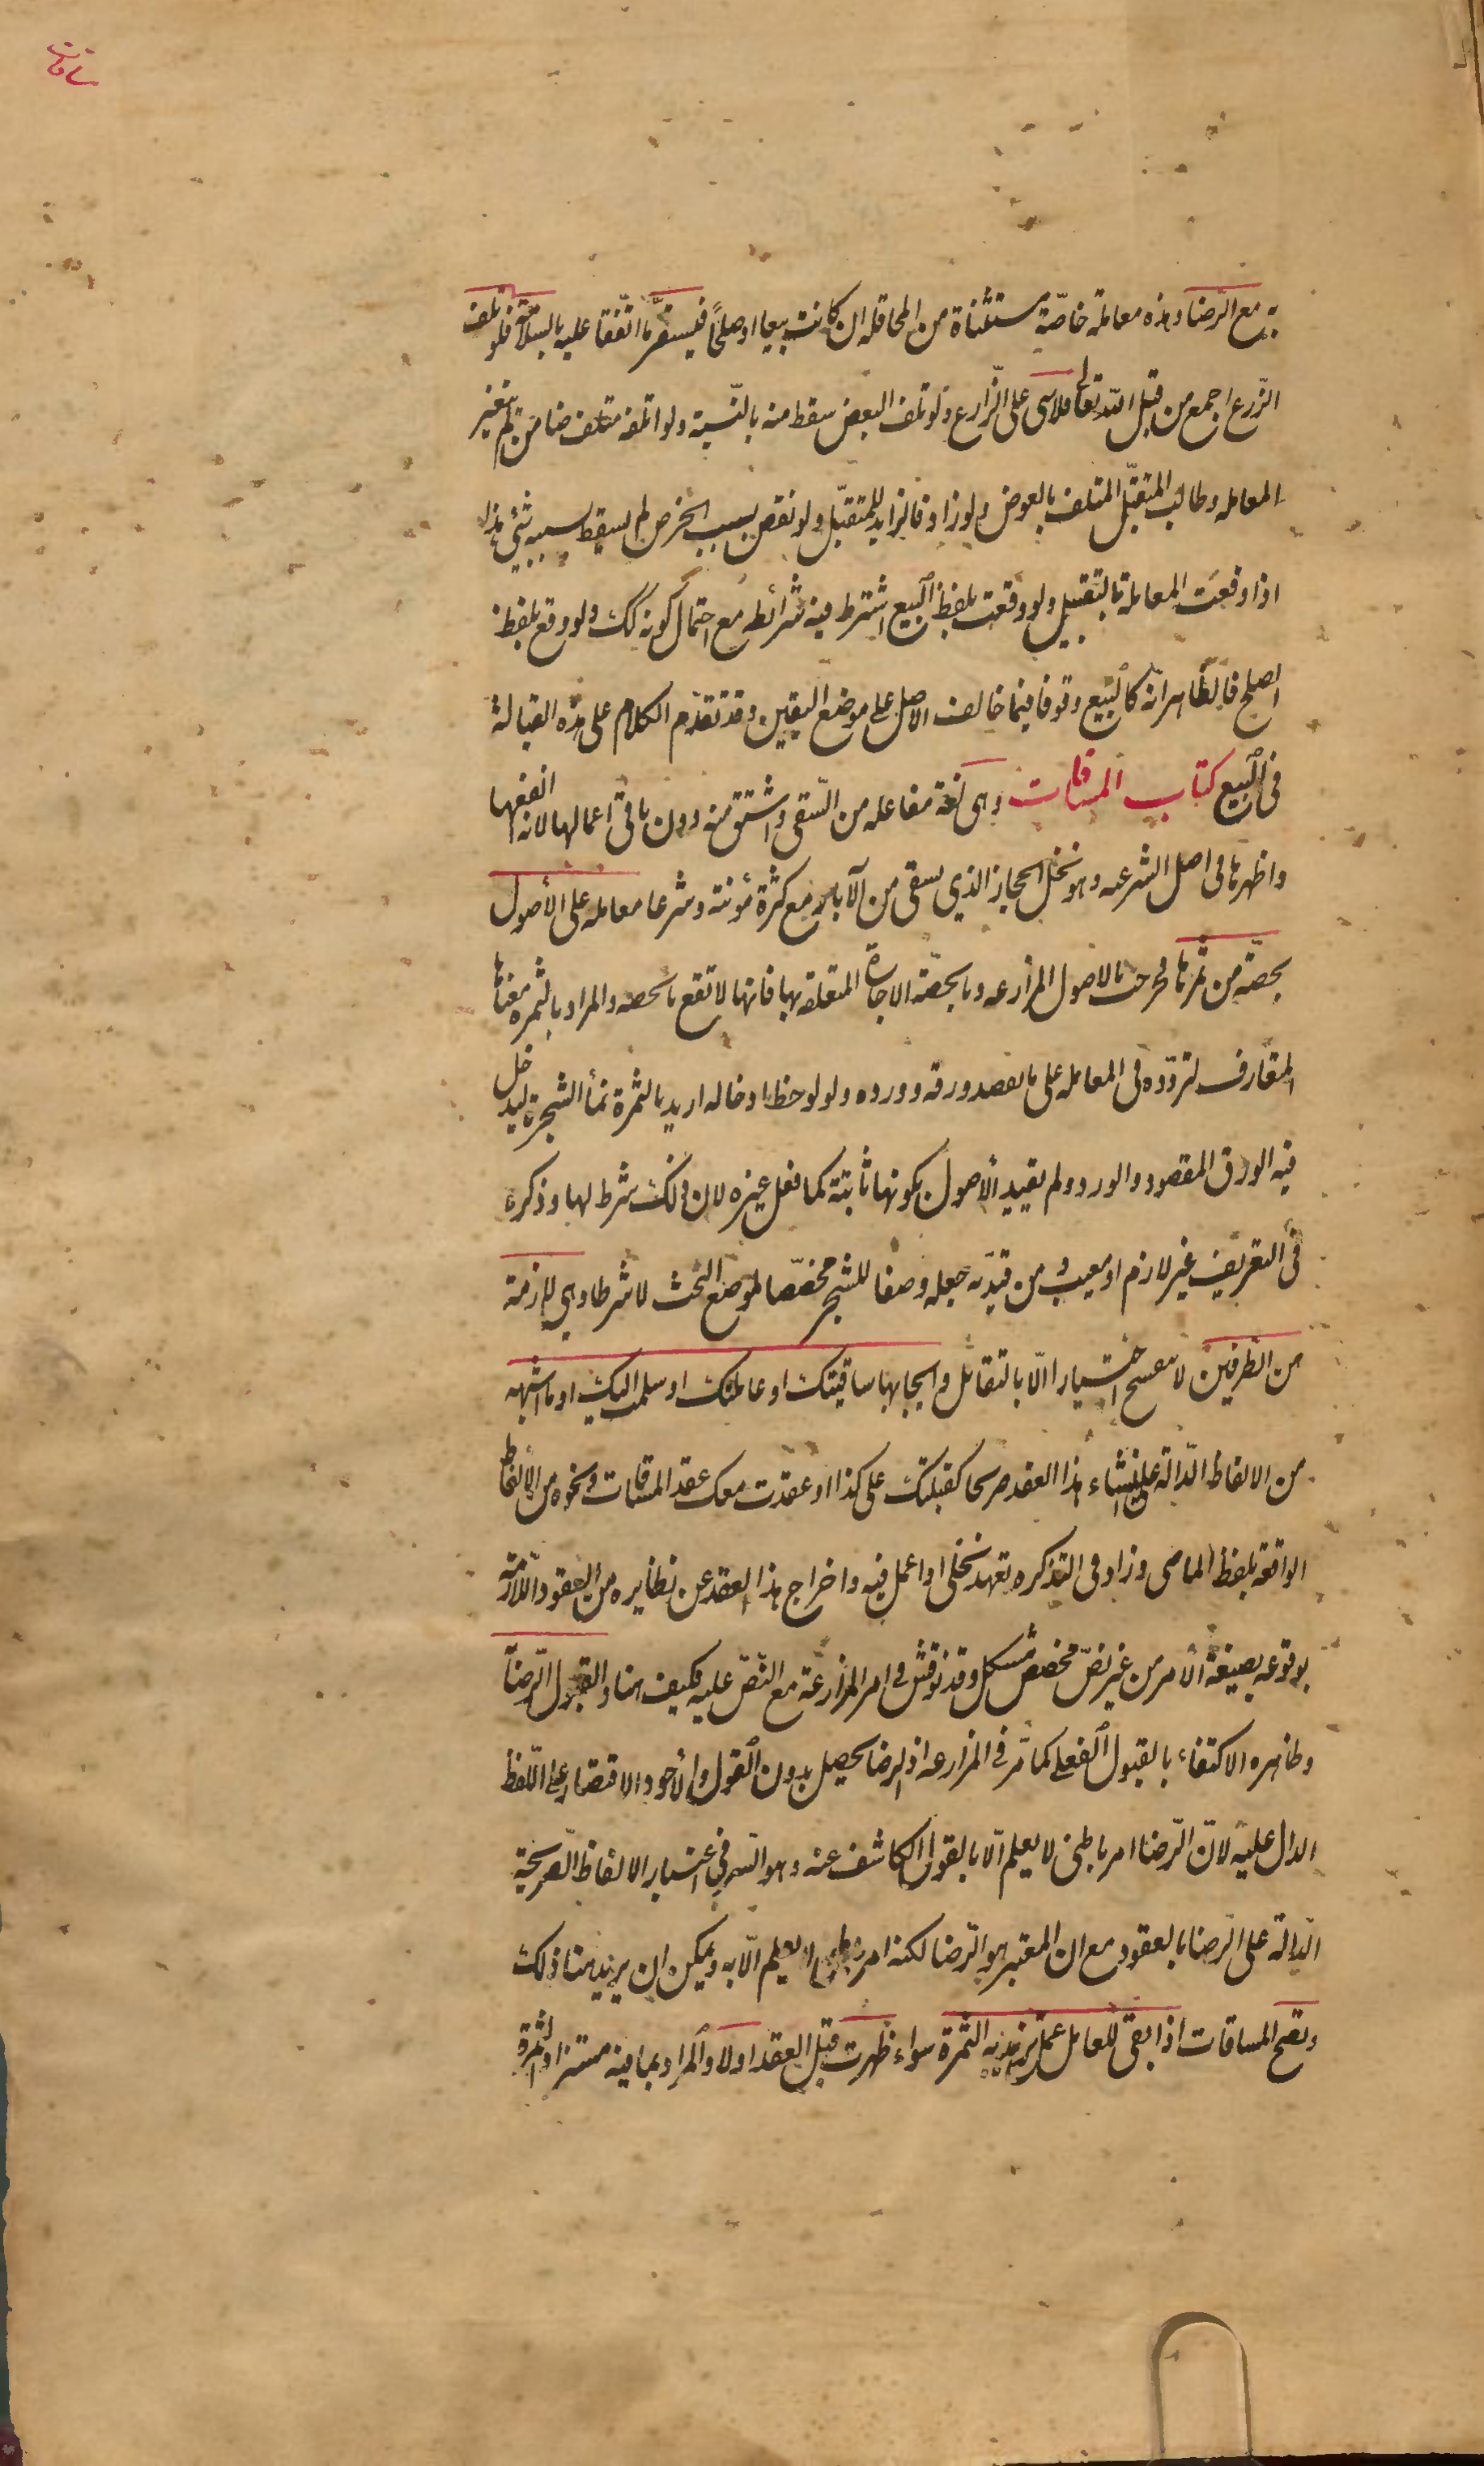 ساقات
به مع الرّضا وهذه معاملة خاصّة مستثناة من المحاقله ان كانت بيعا او صلحاً فيستقرّ ما اتّفقا عليه بالسلامة فلو تلف
الزّرع اجمع من قبل اللّه تعالى فلا شى على الزّارع ولو تلف البعض سقط منه بالنّسبة ولو اتلفه متلف ضامن لم يتغير
المعامله وطالب المتقبّل المتلف بالعوض ولو زاد فالزايد للمتقبّل ولو نقص بسبب الخرص لم يسقط بسببه شئ هذا
اذا وقعت المعاملة بالتقبيل ولو وقعت بلفظ البيع اشترط فيه شرائطه مع احتمال كونه كك ولو وقع بلفظ
الصلح فالظاهر انّه كالبيع وقوفا فيما خالف الاصل على موضع اليقين وقد تقدّم الكلام على هذه القبالة
فى البيع كتاب المساقات وهى لغة مفاعله من السّقى واشتق منه دون باقى اعمالها لانه انفعها
واظهرها فى اصل الشرعيه وهو نخل الحجاز الذي يسقى من الآبار مع كثرة مؤنته وشرعا معامله على الأصول
بحصّة من ثمرتها فخرجت بالاصول المزارعه وبالحصّة الاجارة المتعلقة بها فانها لا تقع بالحصه والمراد بالثمره معناها
المتعارف لتردّده فى المعامله على ما يقصد ورقه و ورده ولو لوحظ ادخاله اريد بالثمرة نمأ الشجرة ليدخل
فيه الورق المقصود والورد ولم يقيد الأصول بكونها ثابتة كما فعل غيره لان ذلك شرط لها وذكره
فى التعريف غير لازم او معيب ومن قيّد به جعله وصفا للشجر مخصّصا لموضع البحث لا شرطا وهي لازمة
من الطرفين لا تنفسخ اختيارا الّا بالتقائل وايجابها ساقيتك او عاملتك او سلمت اليك او ما اشبهه
من الالفاظ الدّالة على انشاء هذا العقد صريحا كقبلتك على كذا او عقدت معك عقد المساقات ونحوه من الألفاظ
الواقعة بلفظ الماضى وزاد فى التذكره تعهد نخلى او اعمل فيه واخراج هذا العقد عن نظايره من العقود اللّازمة
بوقوعه بصيغة الأمر من غير نصّ مخصص مشكل وقد نوقش فى امر المزارعة مع النّصّ عليه فكيف هنا والقبول الرّضا
وظاهره الاكتفاء بالقبول الفعلى كما مرّ في المزارعه اذ الرضا يحصل بدون القول والأجود الاقتصار على اللّفظ
الدال عليه لانّ الرّضا امر باطنى لا يعلم الّا بالقول الكاشف عنه وهو السّر في اعتبار الالفاظ الصّريحة
الدّالة على الرّضا بالعقود مع ان المعتبر هو الرّضا لكنه امر باطنى لا يعلم الّا به ويمكن ان يريد هنا ذلك
وتصح المساقات اذا بقى للعامل عمل تزيد به الثمرة سواء ظهرت قبل العقد او لا والمراد بما فيه مستزاد الثمرة